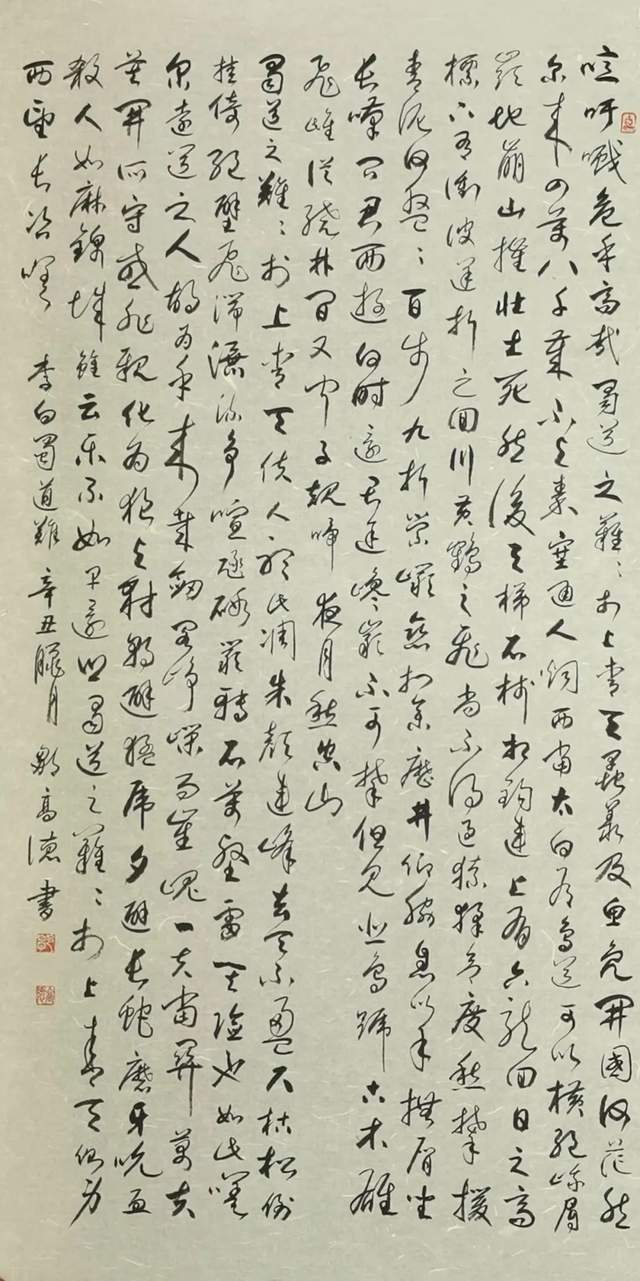 噫吁嚱危乎高哉蜀道之難〻於上青天蠶叢及魚鳧開國何茫然
尔来四萬八千歲不與秦塞通人烟西當太白有鳥道可以橫絕峨眉
巔地崩山摧壯士死然後天梯石棧相鈎連上有六龍回日之高
標下有衝波逆折之回川黃鶴之飛尚不得過猿猱欲度愁攀援
青泥何盤〻百步九折縈巖巒捫參歷井仰脅息以手撫膺坐
長嘆問君西遊何時還畏途巉巖不可攀但見悲鳥號古木雄
飛雌從繞林間又聞子規啼夜月愁空山
蜀道之難〻於上青天使人聽此凋朱顏連峰去天不盈尺枯松倒
挂倚絕壁飛湍瀑流爭喧豗砯崖轉石萬壑雷其險也如此嗟
尔遠道之人胡為乎來哉劍閣崢嶸而崔嵬一夫當關萬夫
莫開所守或非親化為狼與豺朝避猛虎夕避長蛇磨牙吮血
殺人如麻錦城雖云樂不如早還家蜀道之難〻於上青天側身
西望長咨嗟 李白蜀道難 辛丑臘月 高德書